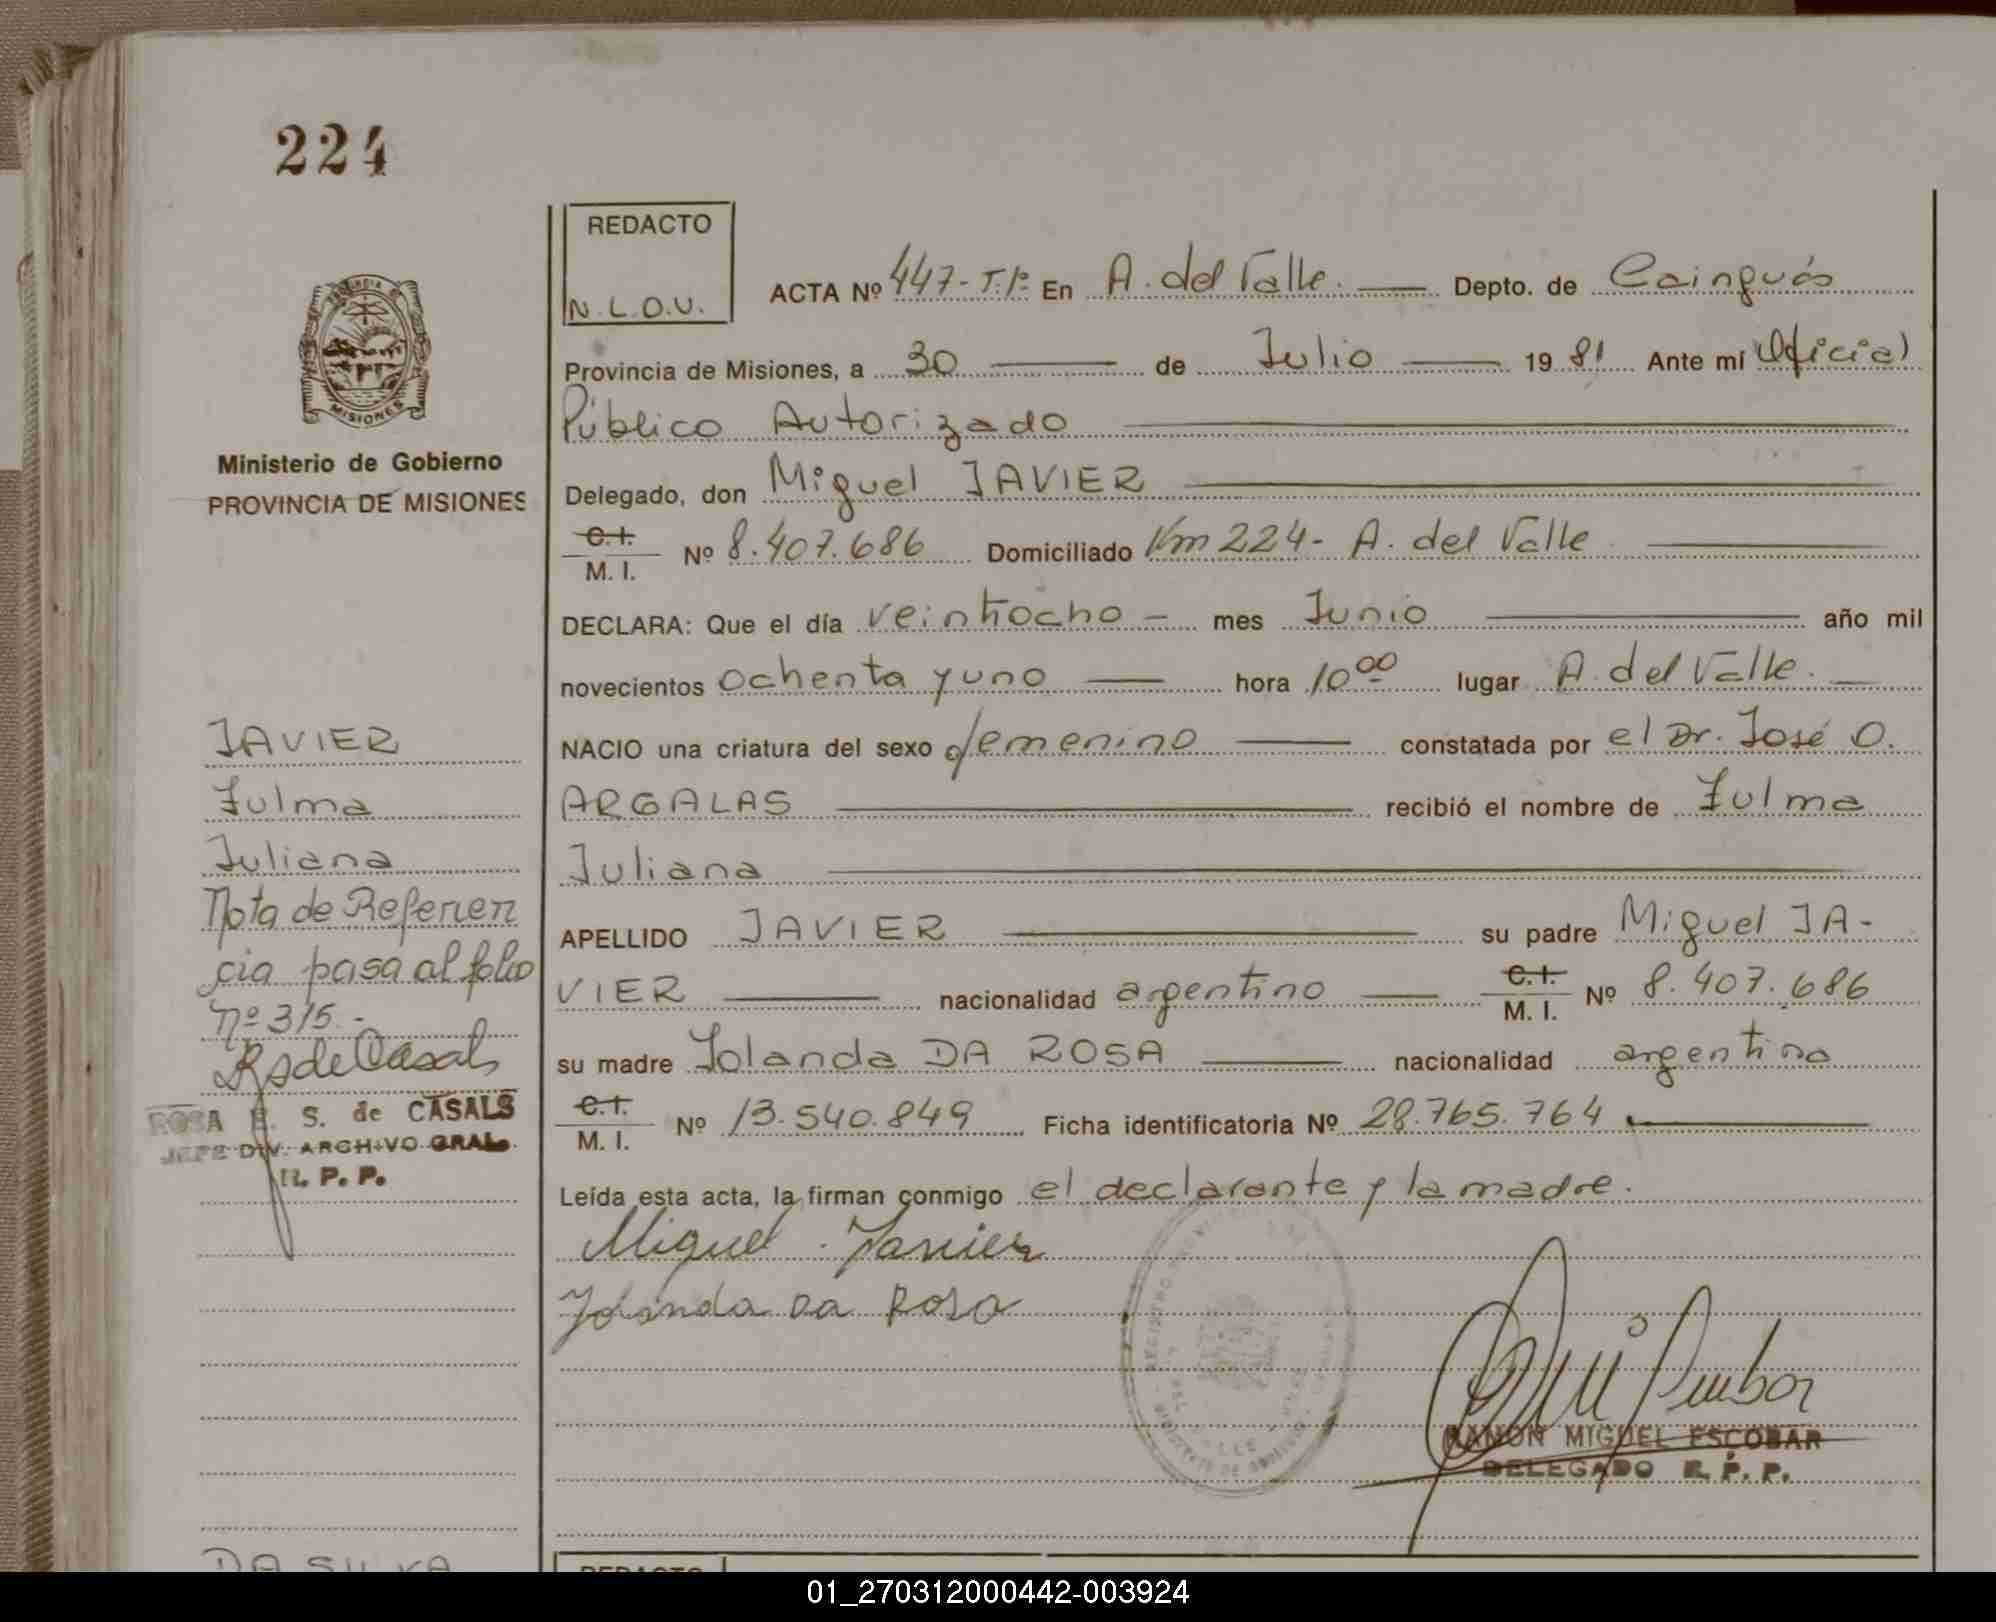 224
REDACTO
N.L.O.U.
ACTA Nº 447-T.Iº En A. del Valle. Depto. de Cainguás
Provincia de Misiones, a 30 de Julio 1981 Ante mí Oficial
Público Autorizado
Delegado, don Miguel JAVIER
C.I.
M. I. Nº 8.407.686 Domiciliado Km 224- A. del Valle
DECLARA: Que el día veintiocho mes Junio año mil
novecientos ochenta y uno hora 10 00 lugar A. del Valle.
NACIO una criatura del sexo femenino constatada por el Dr. José O.
ARGALAS recibió el nombre de Zulma
Juliana
APELLIDO JAVIER su padre Miguel JA-
VIER nacionalidad argentino C.I. M. I. Nº 8.407.686
su madre Yolanda DA ROSA nacionalidad argentina
C.I.
M. I. Nº 13.540.849 Ficha identificatoria Nº 28.765.764
Leída esta acta, la firman conmigo el declarante y la madre.
Miguel Javier
Yolanda Da Rosa
RAMON MIGUEL ESCOBAR
DELEGADO R. P. P.
PROVINCIA DE
MISIONES
Ministerio de Gobierno
PROVINCIA DE MISIONES
JAVIER
Zulma
Juliana
Nota de Referen
cia pasa al folio
nº 315.-
RsdeCasals
ROSA E. S. de CASALS
JEFE DIV. ARCHIVO GRAL.
R. P. P.
DA SILVA
REDACTO
01_270312000442-003924